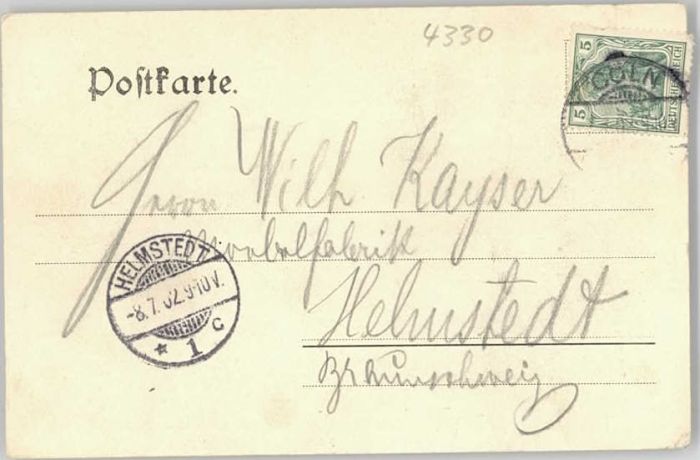 4330
Postkarte.
5
CÖLN
5 DEUTSCHES REICH
Herrn Wilh Kayser
Moebelfabrik
HELMSTEDT
-8.7.02.9-10V.
* 1 c
Helmstedt
Braunschweig